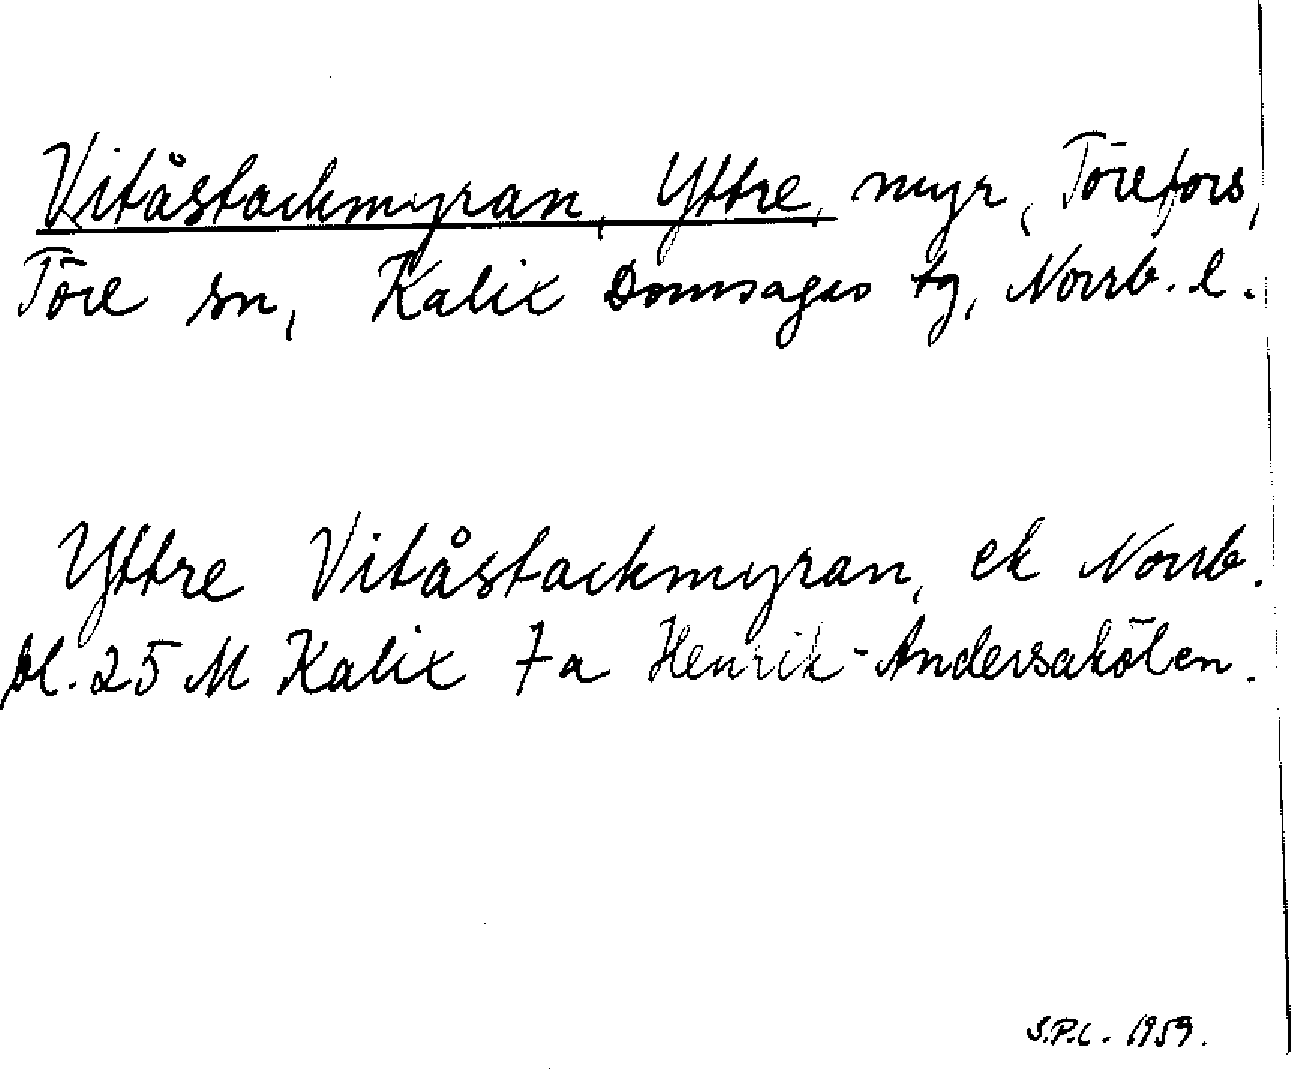 Vitåstackmyran, Yttre, myr, Törefors,
Töre sn, Kalix Domsagas tg, Norrb. l.
Yttre Vitåstackmyran, ek Norrb.
bl. 25 M Kalix 7a Henrik-Andersakölen.
S.P.L. 1959.